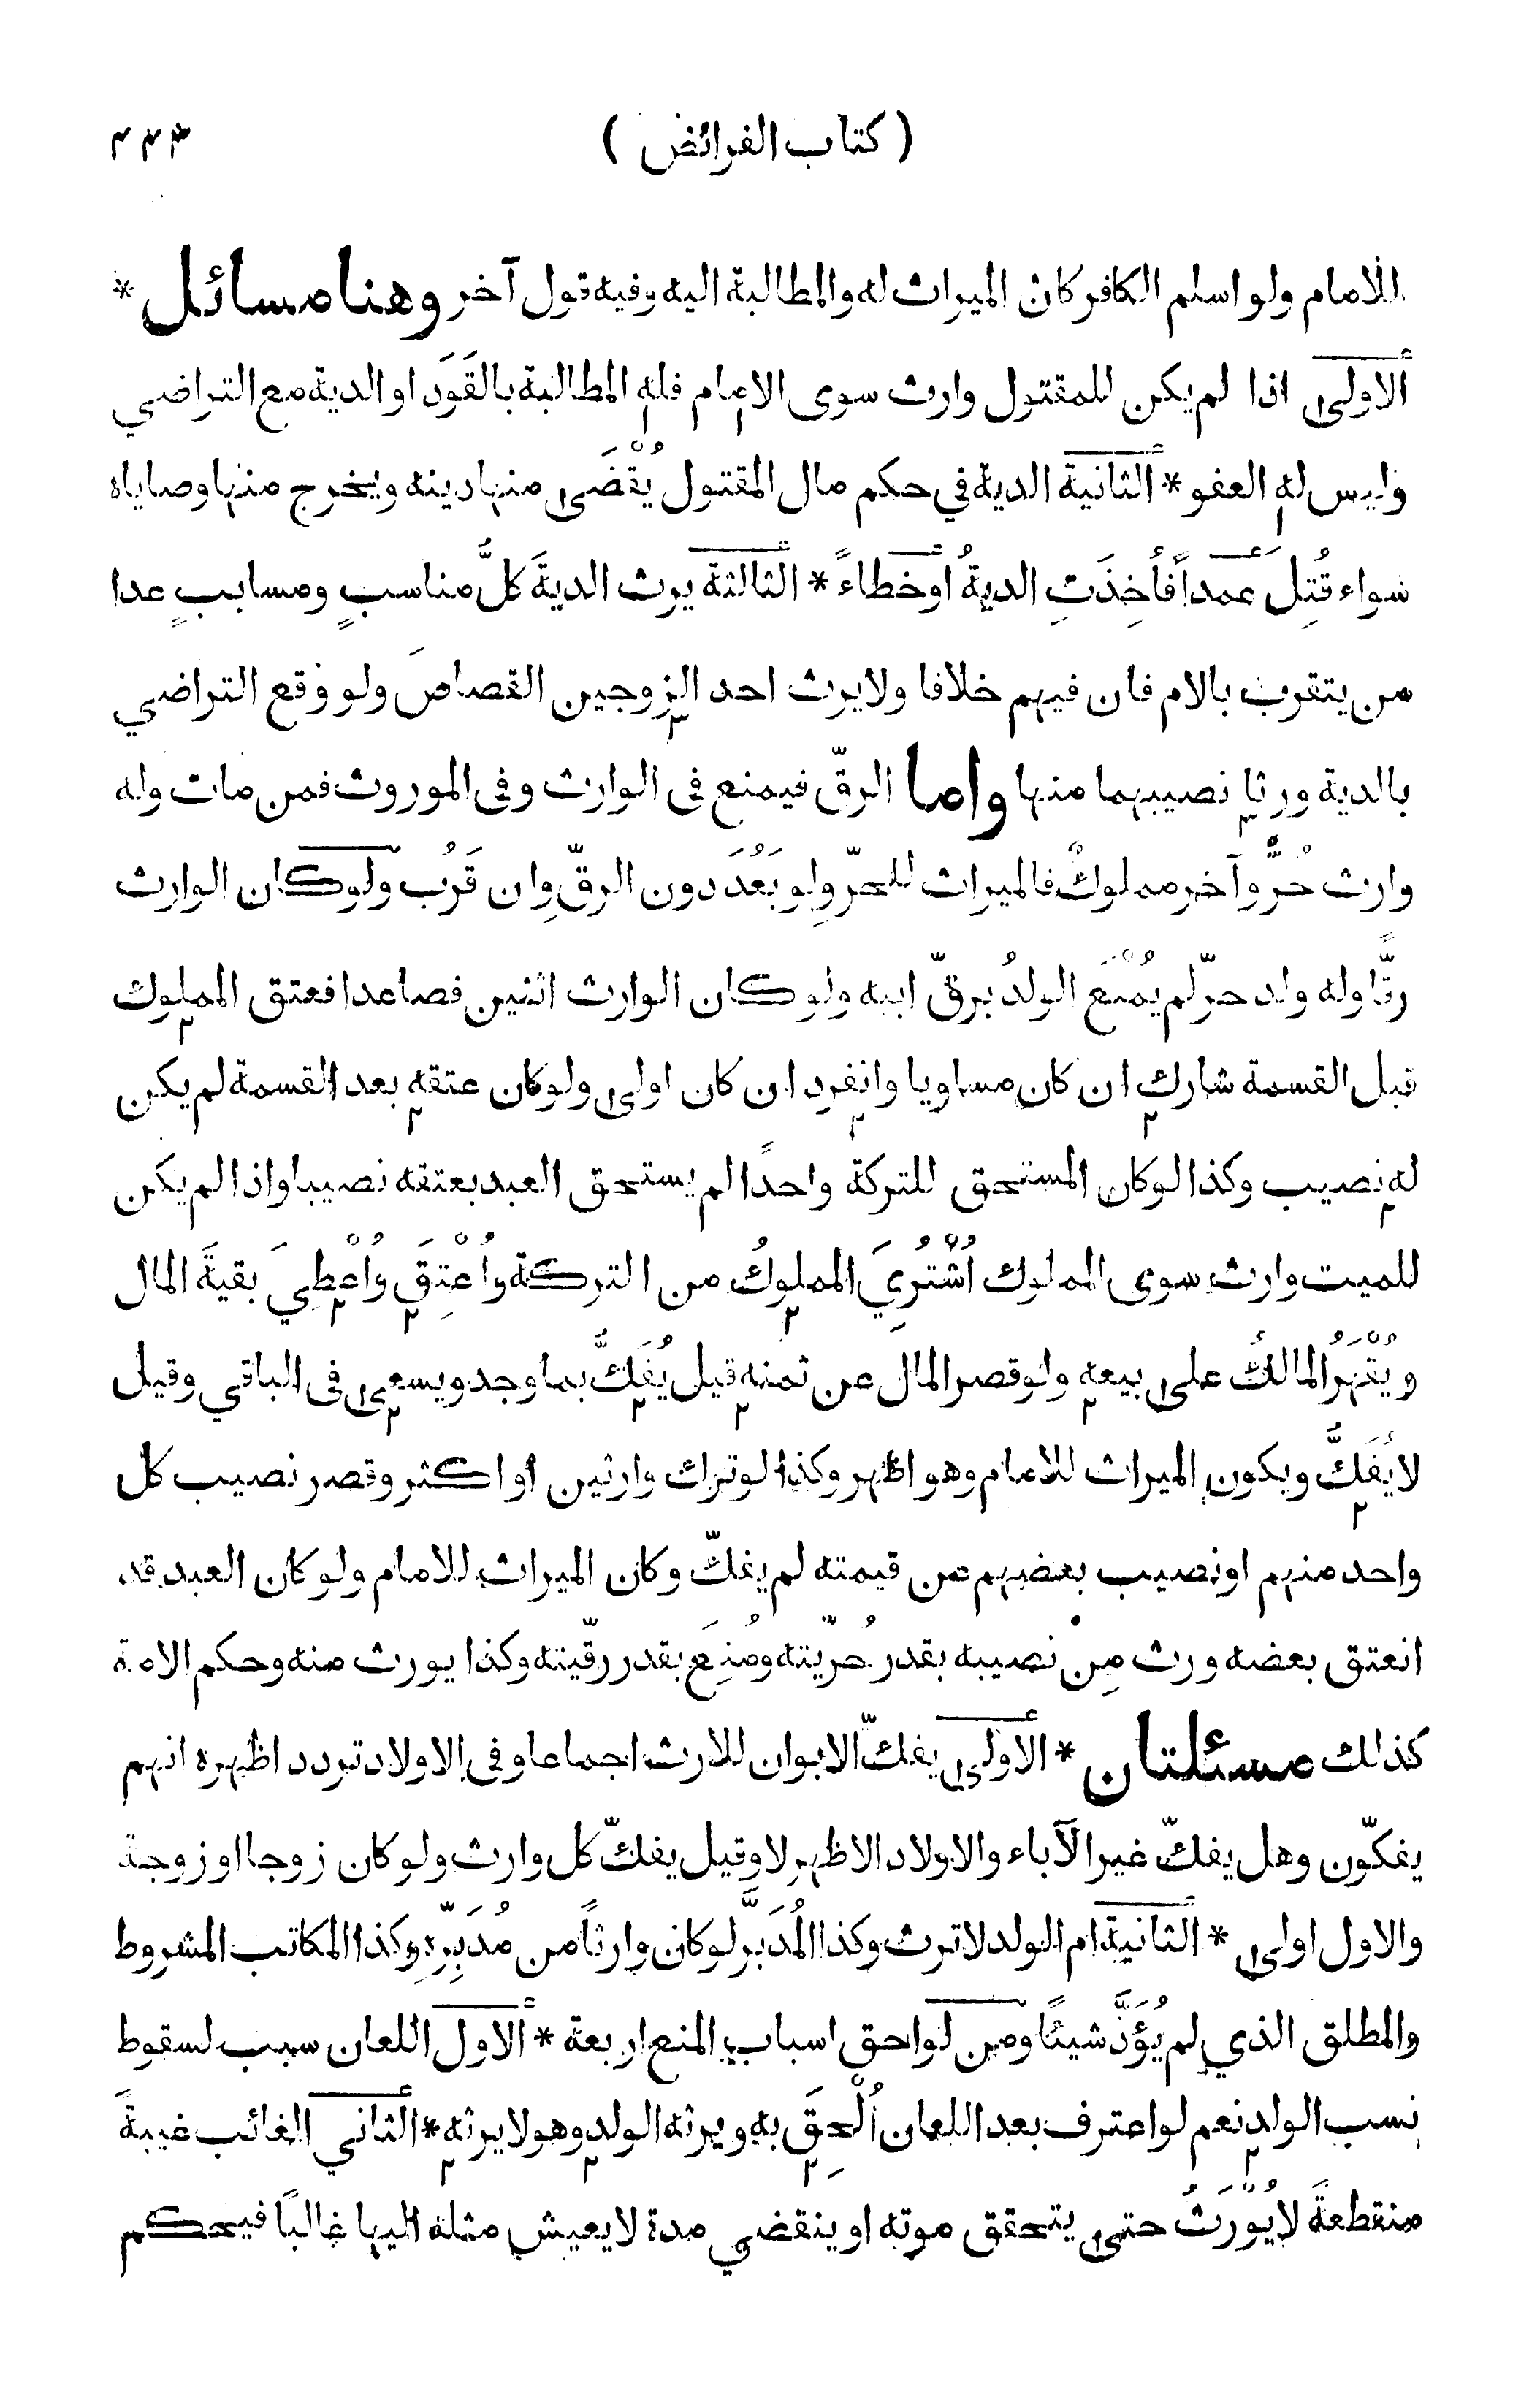 ( كتاب الفرائض )
للامام ولو اسلم الكافر كان الميراث له والمطالبة اليه وفيه قول آخر وهنا مسائل *
الاولى اذا لم يكن للمقتول وارث سوى الامام فله المطالبة بالقَوَد او الدية مع التراضي
وليس له العفو * الثانية الدية في حكم مال المقتول يُقْضَى منها دينه ويخرج منها وصاياه
سواء قُتِلَ عمداً فاُخِذَتِ الديةُ أوخطاءً * الثالثة يرث الديةَ كلُّ مناسبٍ ومساببٍ عدا
من يتقرب بالام فان فيهم خلافا ولايرث احد الزوجين القصاصَ ولو وقع التراضي
بالدية ورثا نصيبهما منها واما الرقّ فيمنع في الوارث وفي الموروث فمن مات وله
وارث حُرٌّ وآخر مملوكٌ فالميراث للحرّ ولو بَعُدَ دون الرقّ وان قَرُب ولوكان الوارث
رقًّا وله ولد حرّ لم يُمْنَع الولدُ برقّ ابيه ولو كان الوارث اثنين فصاعدا فعتق المملوك
قبل القسمة شارك ان كان مساويا وانفرد ان كان اولى ولوكان عتقه بعد القسمة لم يكن
له نصيب وكذا لوكان المستحق للتركة واحدًا لم يستحق العبد بعتقه نصيبا واذا لم يكن
للميت وارث سوى المملوك اُشْتُرِيَ المملوكُ من التركة واُعْتِقَ واُعْطِيَ بقيةَ المال
ويُقْهَرُ المالكُ على بيعه ولو قصر المال عن ثمنه قيل يُفَكُّ بما وجد ويسعى في الباقي وقيل
لايُفَكُّ ويكون الميراث للامام وهو اظهر وكذا لوترك وارثين او اكثر وقصر نصيب كل
واحد منهم او نصيب بعضهم عن قيمته لم يفكّ وكان الميراث للامام ولو كان العبد قد
انعتق بعضه ورث مِنْ نصيبه بقدر حُرّيّته ومُنِعَ بقدر رقّيته وكذا يورث منه وحكم الامة
كذلك مسئلتان * الاولى يفكّ الابوان للارث اجماعا وفي الاولاد تردد اظهره انهم
يفكّون وهل يفكّ غير الآباء والاولاد الاظهر لا وقيل يفكّ كل وارث ولو كان زوجا او زوجة
والاول اولى * الثانية ام الولد لاترث وكذا المُدَبَّر لوكان وارثاً من مُدَبِّرِهِ وكذا المكاتب المشروط
والمطلق الذي لم يُؤَدِّ شيئًا ومن لواحق اسباب المنع اربعة * الاول اللعان سبب لسقوط
نسب الولد نعم لو اعترف بعد اللعان اُلْحِقَ به ويرثه الولد وهو لايرثه * الثاني الغائب غيبةً
منقطعةً لايُوْرَثُ حتى يتحقق موته او ينقضي مدة لايعيش مثله اليها غالبًا فيحكم